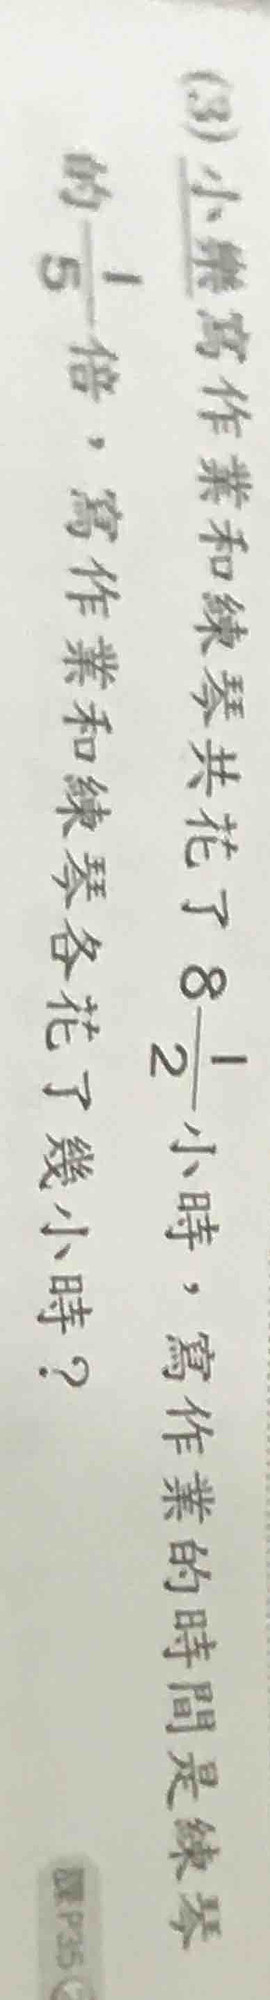 (3) 小樂寫作業和練琴共花了 8 1/2 小時，寫作業的時間是練琴
的 1/5 倍，寫作業和練琴各花了幾小時？
課P35